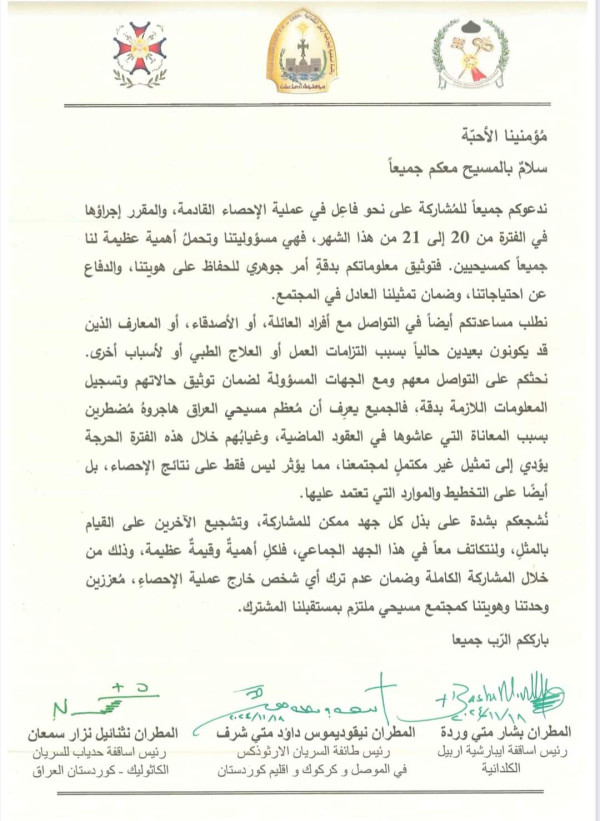 مُؤمنينا الأحبّة
سلامٌ بالمسيح معكم جميعاً
ندعوكم جميعاً للمُشاركة على نحو فاعِل في عملية الإحصاء القادمة، والمقرر إجراؤها
في الفترة من 20 إلى 21 من هذا الشهر، فهي مسؤوليتنا وتحملُ أهمية عظيمة لنا
جميعاً كمسيحيين. فتوثيق معلوماتكم بدقةٍ أمر جوهري للحفاظ على هويتنا، والدفاع
عن احتياجاتنا، وضمان تمثيلنا العادل في المجتمع.
نطلب مساعدتكم أيضاً في التواصل مع أفراد العائلة، أو الأصدقاء، أو المعارف الذين
قد يكونون بعيدين حالياً بسبب التزامات العمل أو العلاج الطبي أو لأسباب أخرى.
نحثكم على التواصل معهم ومع الجهات المسؤولة لضمان توثيق حالاتهم وتسجيل
المعلومات اللازمة بدقة، فالجميع يعرِف أن مُعظم مسيحي العراق هاجروهُ مُضطرين
بسبب المعاناة التي عاشوها في العقود الماضية، وغيابُهم خلال هذه الفترة الحرجة
يؤدي إلى تمثيل غير مكتملٍ لمجتمعنا، مما يؤثر ليس فقط على نتائج الإحصاء، بل
أيضًا على التخطيط والموارد التي تعتمد عليها.
نُشجعكم بشدة على بذل كل جهد ممكن للمشاركة، وتشجيع الآخرين على القيام
بالمثلِ، ولنتكاتف معاً في هذا الجهد الجماعي، فلكلٍ أهميةٌ وقيمةٌ عظيمة، وذلك من
خلال المشاركة الكاملة وضمان عدم ترك أي شخص خارج عملية الإحصاءِ، مُعززين
وحدتنا وهويتنا كمجتمع مسيحي ملتزم بمستقبلنا المشترك.
بارككم الرّب جميعا
٢٠٢٤/١١/١٨
٢٠٢٤/١١/١٨
المطران بشار متي وردة
رئيس اساقفة ايبارشية اربيل
الكلدانية
المطران نيقوديموس داؤد متي شرف
رئيس طائفة السريان الارثوذكس
في الموصل و كركوك و اقليم كوردستان
المطران نثنائيل نزار سمعان
رئيس اساقفة حدياب للسريان
الكاثوليك - كوردستان العراق